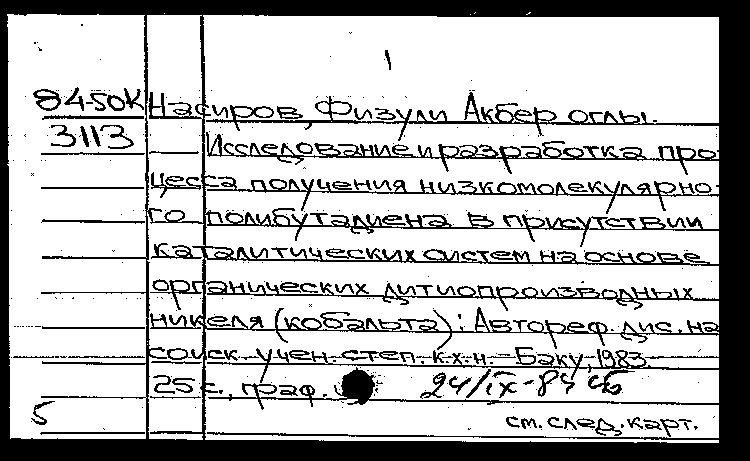 1
84-50К Насиров, Физули Акбер оглы.
3113 Исследование и разработка про-
цесса получения низкомолекулярно-
го полибутадиена в присутствии
каталитических систем на основе
органических дитиопроизводных
никеля (кобальта): Автореф. дис. на
соиск. учен. степ. к.х.н. - Баку, 1983. -
25 с., граф. 24/IX-84
5 см. след. карт.